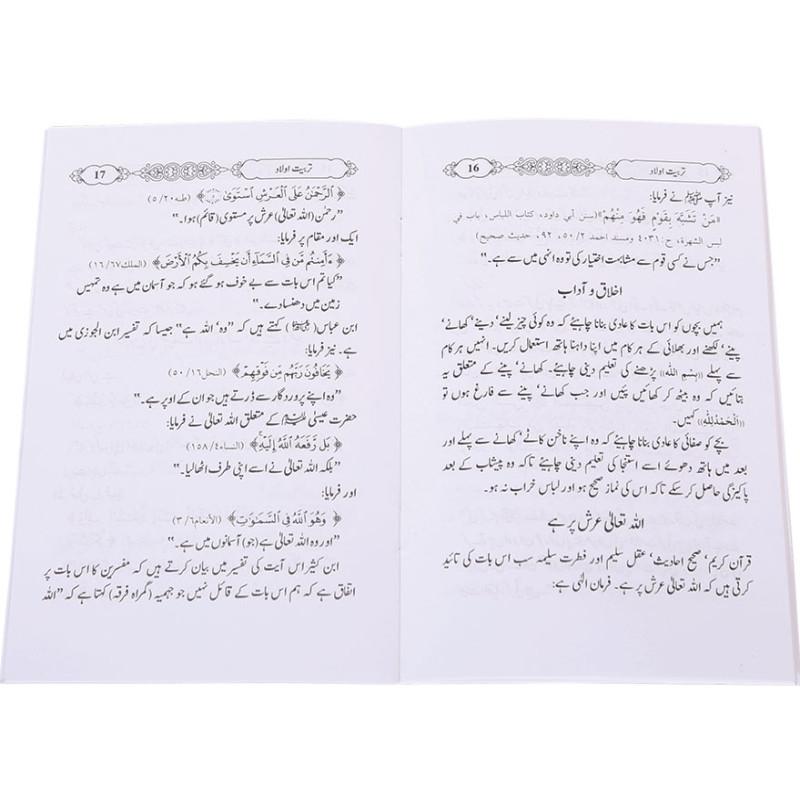 16 تربیت اولاد
نیز آپ ﷺ نے فرمایا:
«مَنْ تَشَبَّهَ بِقَوْمٍ فَهُوَ مِنْهُمْ»(سنن أبي داود، كتاب اللباس، باب في
لبس الشهرة، ح: ٤٠٣١ ومسند احمد ٥٠/٢، ٩٢، حديث صحيح)
”جس نے کسی قوم سے مشابہت اختیار کی تو وہ انہی میں سے ہے۔“
اخلاق و آداب
ہمیں بچوں کو اس بات کا عادی بنانا چاہئیے کہ وہ کوئی چیز لینے‘ دینے‘ کھانے‘
پینے‘ لکھنے اور بھلائی کے ہر کام میں اپنا داہنا ہاتھ استعمال کریں۔ انہیں ہر کام
سے پہلے «بِسْمِ اللهِ» پڑھنے کی تعلیم دینی چاہئیے۔ کھانے‘ پینے کے متعلق یہ
بتائیں کہ وہ بیٹھ کر کھائیں پئیں اور جب کھانے‘ پینے سے فارغ ہوں تو
«اَلْحَمْدُلِلّٰهِ» کہیں۔
بچے کو صفائی کا عادی بنانا چاہئیے کہ وہ اپنے ناخن کاٹے‘ کھانے سے پہلے اور
بعد میں ہاتھ دھوئے اسے استنجا کی تعلیم دینی چاہئیے تاکہ وہ پیشاب کے بعد
پاکیزگی حاصل کر سکے تاکہ اس کی نماز صحیح ہو اور لباس خراب نہ ہو۔
اللہ تعالیٰ عرش پر ہے
قرآن کریم‘ صحیح احادیث‘ عقل سلیم اور فطرت سلیمہ سب اس بات کی تائید
کرتی ہیں کہ اللہ تعالیٰ عرش پر ہے۔ فرمان الٰہی ہے:
17 تربیت اولاد
﴿ ٱلرَّحْمَٰنُ عَلَى ٱلْعَرْشِ ٱسْتَوَىٰ ﴾ (طه٥/٢٠)
”رحمٰن (اللہ تعالیٰ) عرش پر مستوی (قائم) ہوا۔“
ایک اور مقام پر فرمایا:
﴿ ءَأَمِنتُم مَّن فِى ٱلسَّمَآءِ أَن يَخْسِفَ بِكُمُ ٱلْأَرْضَ ﴾ (الملك١٦/٦٧)
”کیا تم اس بات سے بے خوف ہو گئے ہو کہ جو آسمان میں ہے وہ تمہیں
زمین میں دھنسا دے۔“
ابن عباس (رضی اللہ عنہما) کہتے ہیں کہ ”وہ‘ اللہ ہے“ جیسا کہ تفسیر ابن الجوزی میں
ہے۔ نیز فرمایا:
﴿ يَخَافُونَ رَبَّهُم مِّن فَوْقِهِمْ ﴾ (النحل٥٠/١٦)
”وہ اپنے پروردگار سے ڈرتے ہیں جو ان کے اوپر ہے۔“
حضرت عیسیٰ علیہ السلام کے متعلق اللہ تعالیٰ نے فرمایا:
﴿ بَل رَّفَعَهُ ٱللَّهُ إِلَيْهِ ﴾ (النساء١٥٨/٤)
”بلکہ اللہ تعالیٰ نے اسے اپنی طرف اٹھا لیا۔“
اور فرمایا:
﴿ وَهُوَ ٱللَّهُ فِى ٱلسَّمَٰوَٰتِ ﴾ (الأنعام٣/٦)
”اور وہ اللہ تعالیٰ ہے (جو) آسمانوں میں ہے۔“
ابن کثیر اس آیت کی تفسیر میں بیان کرتے ہیں کہ مفسرین کا اس بات پر
اتفاق ہے کہ ہم اس بات کے قائل نہیں جو جہمیہ (گمراہ فرقہ) کہتا ہے کہ ”اللہ